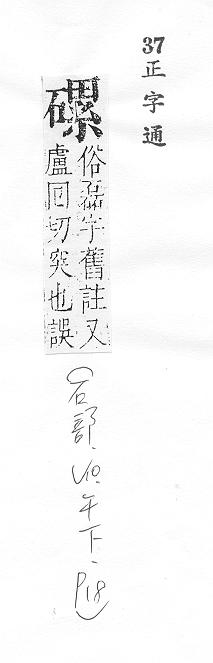 37正字通
磥俗磊字舊註又
盧回切突也誤
(石部.午下.P18)